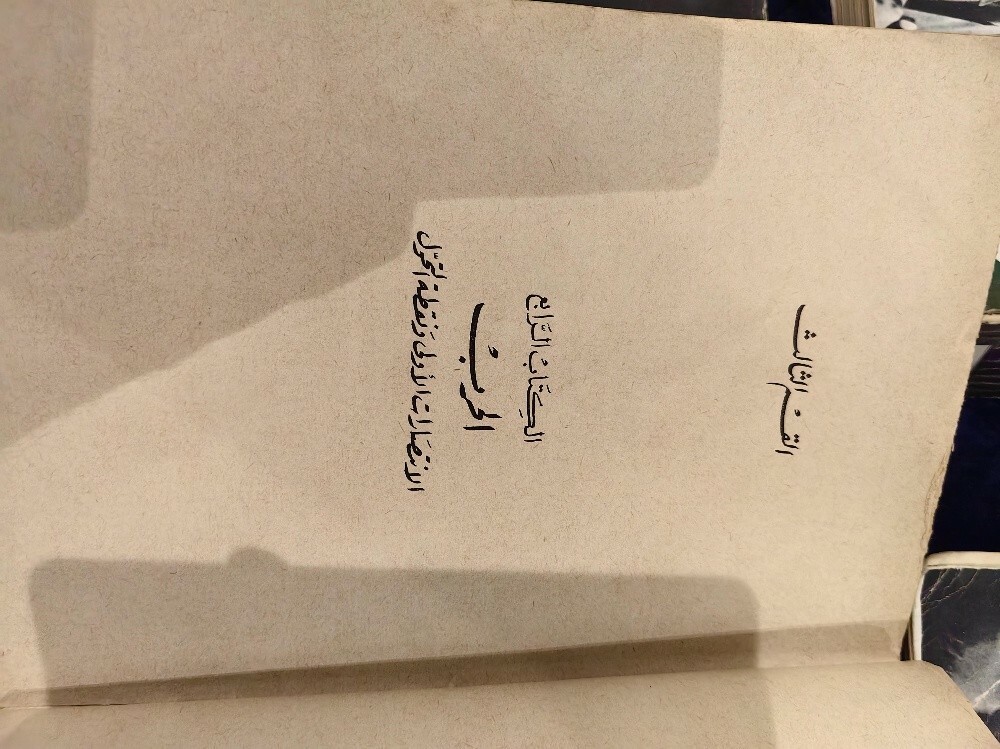 القسم الثالث
الكِتَابُ الرَّابع
الحربُ
الانتصَارات الأولى وَنقطة التحَوّل